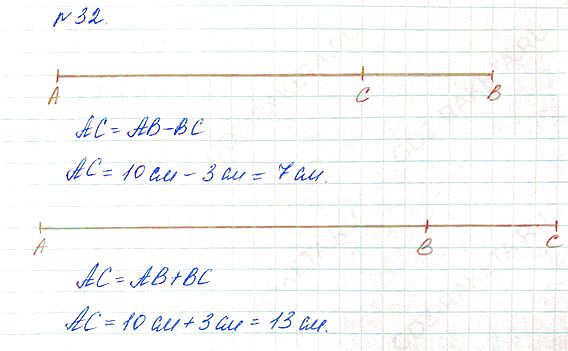 №32.
A C B
AC = AB - BC
AC = 10 см - 3 см = 7 см.
A B C
AC = AB + BC
AC = 10 см + 3 см = 13 см.